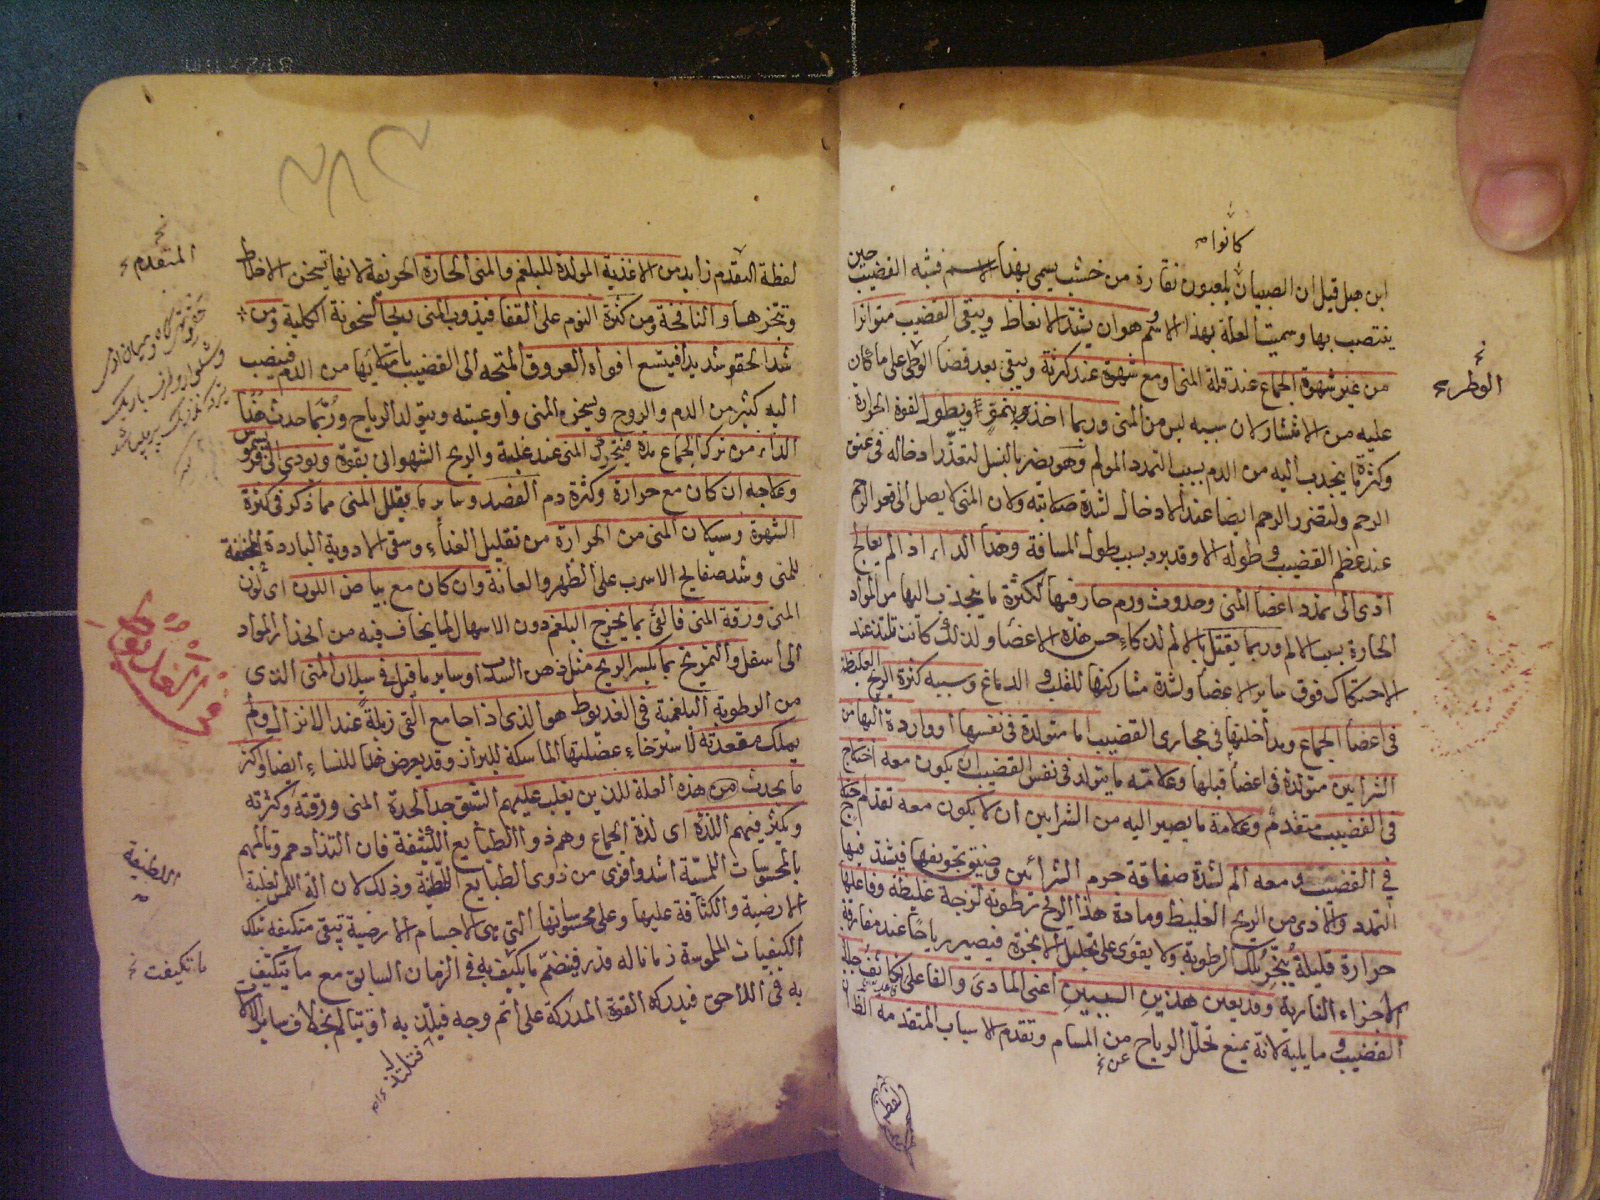 كانوا
ابن هبل قيل ان الصبيان يلعبون نقارة من خشب يسمى بهذا الاسم فشبه القضيب حين
ينتصب بها وسميت العلة بهذا الاسم هو ان يشتد الانعاظ ويبقى القضيب متواترا
من غير شهوة الجماع عند قلة المنى او مع شهوة عند كثرته ويبقى بعد قضا الوطى على ما كان
الوطر
عليه من الانتشار لان سببه ليس من المنى وربما اخذ ويطول لقوة الحرارة
وكثرة ما ينجذب اليه من الدم بسبب التمدد المولم وهو يضر بالنسل لتعذر ادخاله فى عنق
الرحم ولتضرر الرحم ايضا عند الادخال لشدة صلابته ولان المنى لا يصل الى قعر الرحم
عند عظم القضيب وطوله الا وقد برد بسبب طول المسافة وهذا الداء اذا لم يعالج
ادى الى تمدد اعضا المنى وحدوث ورم حار فيها لكثرة ما ينجذب اليها من المواد
الحارة بسبب الالم وربما يقتل بالالم لذكاء حس هذه الاعضا ولذلك كانت تلتذ عند
الاحتكاك فوق ساير الاعضا ولشدة مشاركتها للقلب و الدماغ وسببه كثرة الريح الغليظة
فى اعضا الجماع ومداخلتها فى مجارى القضيب اما متولدة فى نفسها او واردة اليها من
الشرايين متولدة فى اعضا قبلها وعلامة ما يتولد فى نفس القضيب ان يكون معه اختلاج
فى القضيب متقدم وعلامة ما يصير اليه من الشرايين ان لا يكون معه تقدم اختلاج
فى القضيب ومعه الم لشدة صفاقة جرم الشرائين وضيق تجويفها فيشتد فيها
التمدد والاذى من الريح الغليظ ومادة هذا الريح رطوبة لزجة غليظة وفاعلها
حرارة قليلة يُبخر تلك الرطوبة ولا يقوى على تحليل الابخرة فيصير رياحا عند مفارقة
الاجزاء النارية وقد يعين هذين السببين اعنى المادى والفاعلى تكاثف جلدة
القضيب و ما يليه لانه يمنع تحلل الرياح من المسام وتقدم الاسباب المتقدمة
عن
لفظة
لفظة التقدم زايد من الاغذية المولدة للبلغم والمنى الحارة الحريفة لانها تسخن الاخلاط
المتقدم
وتبخرها والنافخة ومن كثرة النوم على القفا فيذوب المنى ريحا لسخونة الكلية ومن
شد الحقو شديدا فيتسع افواه العروق المتجه الى القضيب من الدم فينصب
اليه كثير من الدم والروح ويسخن المنى واوعيته ويتولد الرياح ورُبما حدث هذا
الداء من ترك الجماع مدة فيتحرك المنى عند غلبته والريح الشهوانى بقوة ويودى الى
وعلاجه ان كان مع حرارة وكثرة دم الفصد وساير ما يقلل المنى مما ذكر فى كثرة
الشهوة وسيلان المنى من الحرارة من تقليل الغذاء وسقى الادوية الباردة المجففة
للمنى وشد صفايح الاسرب على الظهر والعانة وان كان مع بياض اللون اى لون
المنى ورقة المنى فالقئ بما يخرج البلغم دون الاسهال لما يخاف فيه من انحدار المواد
الى اسفل والتمريخ بما يكسر الريح مثل دهن السداب وساير ما قيل فى سيلان المنى الذى
من الرطوبة البلغمية فى العذيوط هو الذى اذا جامع القى زبلة عند الانزال ولم
يملك مقعدته لاسترخاء عضلتها الماسكة للبراز وقد يعرض هذا للنساء ايضا واكثر
ما يحدث من هذه العلة للذين يغلب عليهم الشبق جدا لحدة المنى ورقته وكثرته
ويكثر فيهم اللذة اى لذة الجماع وهم ذووا الطبايع الكثيفة فان التذاذهم وتالمهم
اللطيفة
بالمحسوسات اللمسية اشد واقوى من ذوى الطبايع اللطيفة وذلك لان آلة اللمس لغلبة
الارضية والكثافة عليها وعلى محسوساتها التى هى الاجسام الارضية تبقى متكيفة بتلك
الكيفيات الملموسة زمانا له قدر فينضم ما تكيف به فى الزمان السابق مع ما يتكيف
ما تكيفت
به فى اللاحق فيدركه القوة المدركة على اتم وجه فيلتذ به او يتالم بخلاف ساير الالات
فتلتذ